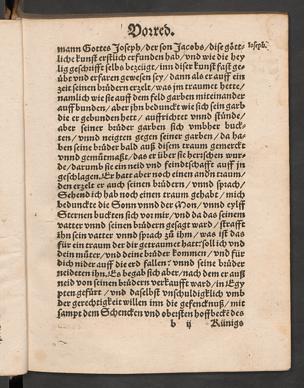 Vorred.
mann Gottes Joseph / der son Jacobs / dise gött-
Joseph.
liche kunst erstlich erfunden hab / vnd wie die hey
lig geschrifft selbs bezeügt / inn diser kunst fast ge-
übt vnd erfaren gewesen sey / dann als er auff ein
zeit seinen brüdern erzelt / was jm traumet hette /
namlich wie sie auff dem feld garben miteinander
auff bunden / aber jhn beduncket wie sich sein garb
die er gebunden hett / auffrichtet vnnd stünde /
aber seiner brüder garben sich vmbher buck-
ten / vnnd neigten gegen seiner garben / da ha-
ben seine brüder bald auß disem traum gemerckt
vnnd gemütmaßt / das er über sie herrschen wur-
de / darumb sie ein neid vnd feindtschafft auff jn
geschlagen. Er hatt aber noch einen andern traum /
den erzelt er auch seinen brüdern / vnnd sprach /
Sehend ich hab noch einen traum gehabt / mich
beduncket die Sonn vnnd der Mon / vnnd eylff
Sternen buckten sich vor mir / vnd da das seinem
vatter vnnd seinen brüdern gesagt ward / strafft
jhn sein vatter vnnd sprach zů jhm / was ist das
für ein traum der dir getraumet hatt: soll ich vnd
dein můter / vnd deine brüder kommen / vnd für
dich nider auff die erd fallen: vnnd seine brüder
neideten jhn. Es begab sich aber / nach dem er auß
neid von seinen brüdern verkaufft ward / in Egy
pten gefürt / vnd daselbst vnschuldigklich vmb
der gerechtigkeit willen inn die gefencknuß / mit
sampt dem Schencken vnd obeisten hoffbecke des
b ij Künigs